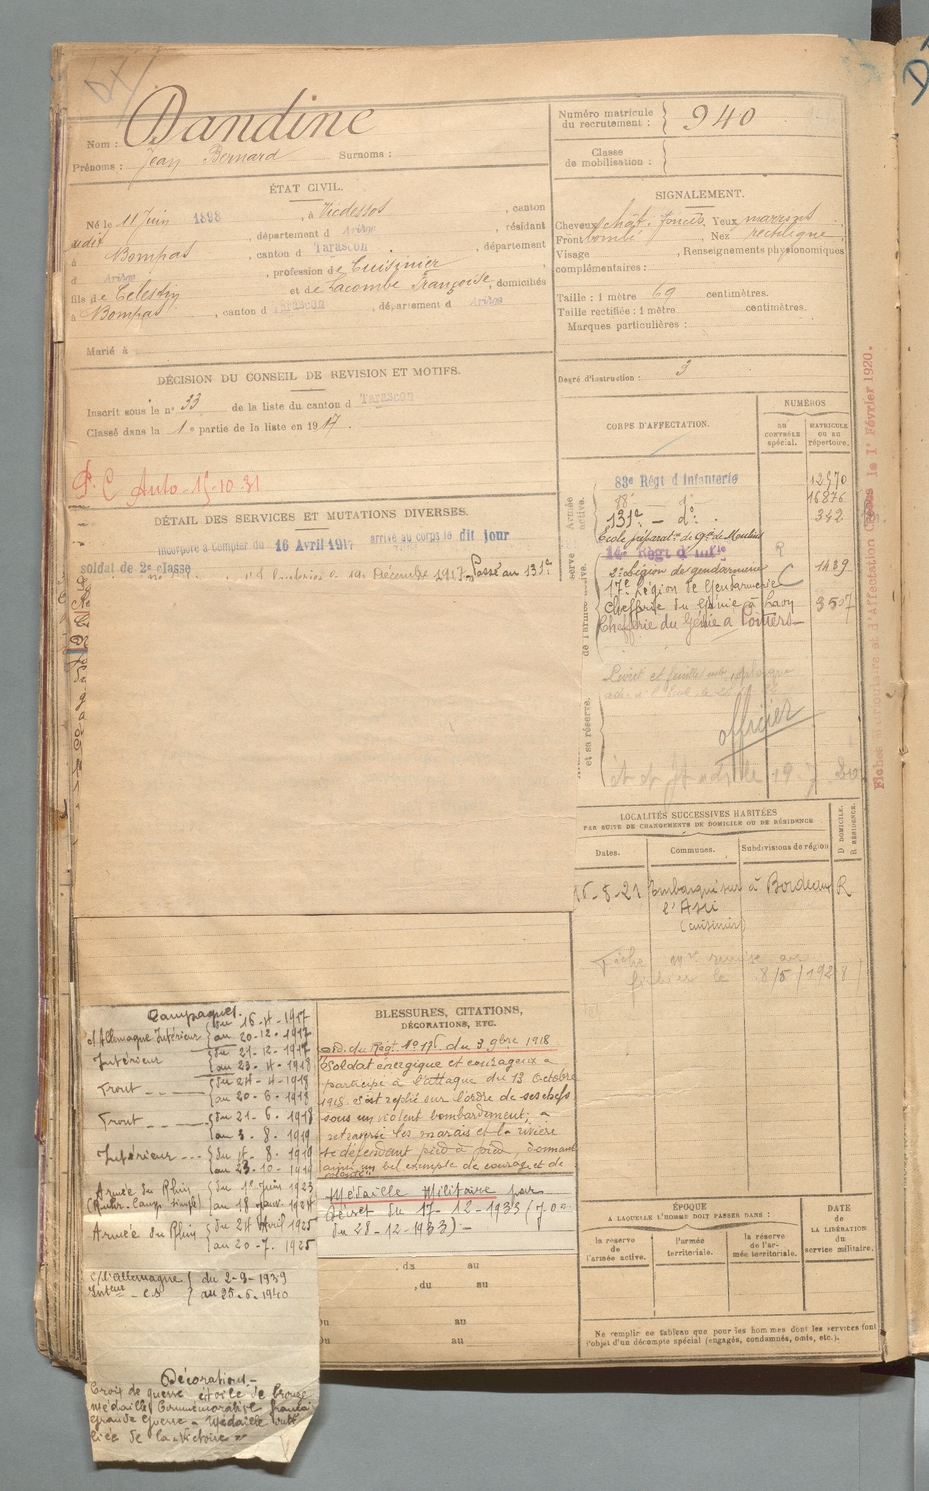 Nom : Dandine
Prénoms : Jean Bernard Surnoms :
Numéro matricule du recrutement : 940
Classe de mobilisation :
ÉTAT CIVIL.
Né le 11 Juin 1898, à Vicdessos, canton
dudit, département d Ariège, résidant
à Bompas, canton d Tarascon, département
d Ariège, profession de Cuisinier
fils de Celestin et de Lacombe Françoise, domiciliés
à Bompas, canton d Tarascon, département d Ariège
Marié à
SIGNALEMENT.
Cheveux chât. foncés Yeux marrons
Front bombé, Nez rectiligne
Visage, Renseignements physionomiques
complémentaires :
Taille : 1 mètre 69 centimètres.
Taille rectifiée : 1 mètre centimètres.
Marques particulières :
Degré d'instruction : 3
DÉCISION DU CONSEIL DE REVISION ET MOTIFS.
Inscrit sous le n° 33 de la liste du canton d Tarascon
Classé dans la 1e partie de la liste en 1917.
P. C Auto 15-10-31
DÉTAIL DES SERVICES ET MUTATIONS DIVERSES.
Incorporé à compter du 16 Avril 1917 arrivé au corps le dit jour
soldat de 2e classe
19 Décembre 1917. Passé au 131e
CORPS D'AFFECTATION.
NUMÉROS
au contrôle spécial.
matricule ou au répertoire.
83e Régt d'Infanterie 12570
88e do 16876
131e — do 342
Ecole préparat. de Gie de Moulins
14e Régt d'Inf
2e Légion de gendarmerie 1439
17e Légion de Gendarmerie
Chefferie du Génie à Laon 3507
Chefferie du Génie à Poitiers
officier
Fiches et d'Affectation Créées le 1r Février 1920.
LOCALITÉS SUCCESSIVES HABITÉES
PAR SUITE DE CHANGEMENTS DE DOMICILE OU DE RÉSIDENCE
Dates. Communes. Subdivisions de région D. DOMICILE. R. RÉSIDENCE.
16-8-21 Embarqué sur à Bordeaux R
l'Asie
(cuisinier)
Fiche remise au
fichier le 8/5/1928
Campagnes
c/ Allemagne Intérieur du 16-4-1917
au 20-12-1917
Intérieur du 21-12-1917
au 23-4-1918
Front du 24-4-1918
au 20-6-1918
Front du 21-6-1918
au 3-8-1919
Intérieur du 4-8-1919
au 23-10-1919
Armée du Rhin du 1er Juin 1923
(Ruhr-Camp. simple) au 18 janv. 1924
Armée du Rhin du 24 Avril 1925
au 20-7-1925
c/ l'Allemagne du 2-9-1939
Inteur - C.S au 25-6-1940
Décorations.-
Croix de guerre étoile de bronze
Médaille Commémorative française
grande guerre - Médaille
de la Victoire
BLESSURES, CITATIONS,
DÉCORATIONS, ETC.
ord. du Régt. N° 175 du 3 9bre 1918
Soldat énergique et courageux a
participé à l'attaque du 13 octobre
1918 s'est replié sur l'ordre de ses chefs
sous un violent bombardement; a
retraversé les marais et la rivière
se défendant pied à pied, donnant
ainsi un bel exemple de courage et de
Médaille Militaire par
Décret du 17-12-1933 (J.O.
du 28-12-1933)
, du au
, du au
Du au
Du au
ÉPOQUE
A LAQUELLE L'HOMME DOIT PASSER DANS :
la réserve de l'armée active. l'armée territoriale. la réserve de l'armée territoriale.
DATE
de
LA LIBÉRATION
du
service militaire.
Ne remplir ce tableau que pour les hommes dont les services font
l'objet d'un décompte spécial (engagés, condamnés, omis, etc.).